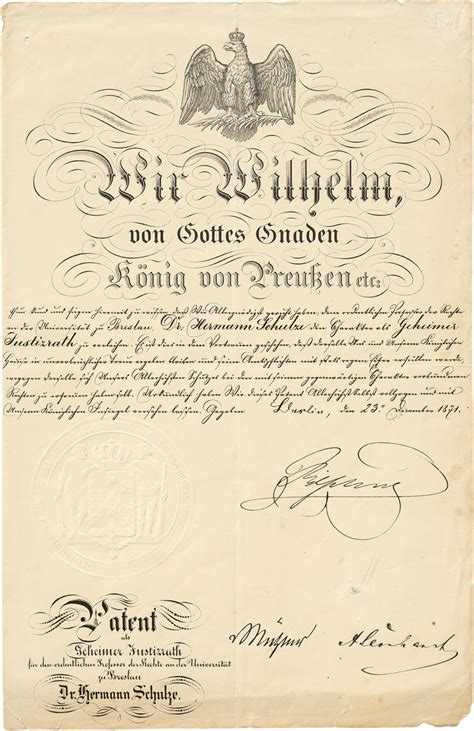 Wir Wilhelm,
von Gottes Gnaden
König von Preußen etc:
Thun kund und fügen hiermit zu wissen, daß Wir Allergnädigst geruht haben, dem ordentlichen Professor der Rechte
an der Universität zu Breslau, Dr. Hermann Schulze den Charakter als Geheimer
Justizrath zu verleihen. Es ist dies in dem Vertrauen geschehen, daß derselbe Uns und Unserem Königlichen
Hause in unverbrüchlicher Treue ergeben bleiben und seine Amtspflichten mit stets regem Eifer erfüllen werde,
wogegen derselbe sich Unseres Allerhöchsten Schutzes bei den mit seinem gegenwärtigen Charakter verbundenen
Rechten zu erfreuen haben soll. Urkundlich haben Wir dieses Patent Allerhöchstselbst vollzogen und mit
Unserem Königlichen Insiegel versehen lassen. Gegeben Berlin, den 23. Dezember 1871.
Patent
als
Geheimer Justizrath
für den ordentlichen Professor der Rechte an der Universität
zu Breslau
Dr. Hermann Schulze.